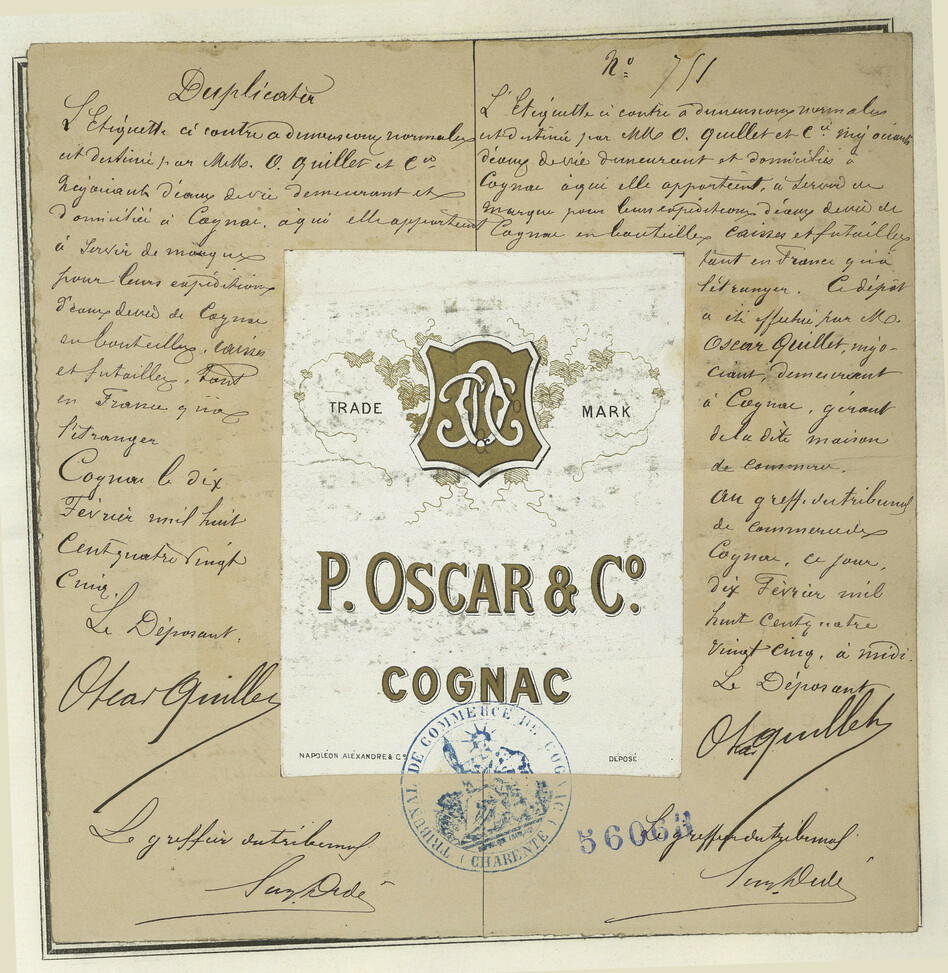 Duplicata
L'Etiquette ci contre a dimensions normales
est destiné par M.M. O. Quillet et Cie
Négociants d'eaux de vie demeurant et
domiciliés à Cognac, a qui elle appartient
à servir de marque
pour leurs expéditions
d'eaux de vie de Cognac
en bouteilles, caisses
et futailles, tant
en France qu'à
l'étranger
Cognac le dix
Février mil huit
cent quatre vingt
cinq.
Le Déposant.
Oscar Quillet
Le greffier du tribunal
No 751
L'Etiquette ci contre a dimensions normales
est destiné par MM O. Quillet et Cie négociants
d'eaux de vie demeurant et domiciliés à
Cognac à qui elle appartient, à servir de
marque pour leurs expéditions d'eaux de vie de
Cognac en bouteilles caisses et futailles
tant en France qu'à
l'étranger. Ce dépôt
a été effectué par M.
Oscar Quillet, négo-
ciant, demeurant
à Cognac, gérant
de la dite maison
de commerce.
Au greffe du tribunal
de commerce de
Cognac, ce jour,
dix Février mil
huit cent quatre
vingt cinq, à midi.
Le Déposant
Quillet
Le greffier du tribunal
TRADE MARK
P. OSCAR & Co.
COGNAC
NAPOLÉON ALEXANDRE & Co
DÉPOSÉ
TRIBUNAL DE COMMERCE DE COGNAC
(CHARENTE)